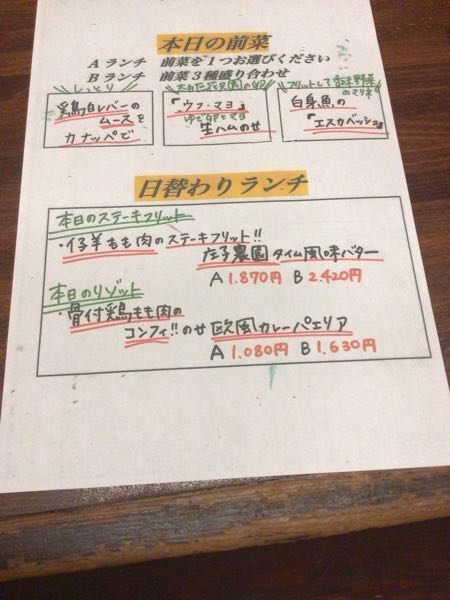 本日の前菜
Aランチ 前菜を1つお選びください
Bランチ 前菜3種盛り合わせ
しっとり
鶏白レバーの
ムースを
カナッペで
の卵
『ウフ・マヨ』
ゆで卵とマヨ
生ハムのせ
フリットして香味野菜
のマリネ
白身魚の
『エスカベッシュ』
日替わりランチ
本日のステーキフリット
・仔羊もも肉のステーキフリット!!
庄子農園タイム風味バター
A 1.870円 B 2.420円
本日のリゾット
・骨付鶏もも肉の
コンフィ!!のせ 欧風カレーパエリア
A 1.080円 B 1.630円